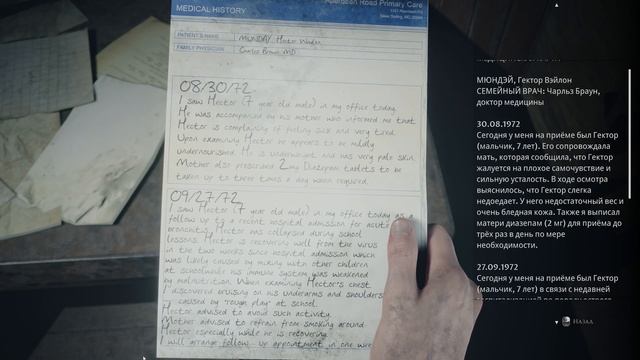 Aberdeen Road Primary Care
MEDICAL HISTORY
PATIENT'S NAME
MUNDAY, Hector
FAMILY PHYSICIAN
Brown MD
08/30/72
I saw Hector (7 year old male) in my office today.
He was accompanied by his mother who informed me that
Hector is complaining of feeling sick and very tired.
Upon examining Hector he appears to be mildly
undernourished. He is underweight and has very pale skin.
Mother also prescribed 2mg Diazepam tablets to be
taken up to three times a day when required.
09/27/72
I saw Hector (7 year old male) in my office today as a
follow up to a recent hospital admission for acute
bronchitis. Hector was collapsed during school
lessons. Hector is recovering well from the virus
in the two weeks since hospital admission which
was likely caused by mixing with other children
at school while his immune system was weakened
by malnutrition. When examining Hector's chest
I discovered bruising on his underarms and shoulders
caused by "rough play" at school.
Hector advised to avoid such activity.
Mother advised to refrain from smoking around
Hector especially while he is recovering.
I will arrange follow-up appointment in one
МЮНДЭЙ, Гектор Вэйлон
СЕМЕЙНЫЙ ВРАЧ: Чарльз Браун,
доктор медицины
30.08.1972
Сегодня у меня на приёме был Гектор
(мальчик, 7 лет). Его сопровождала
мать, которая сообщила, что Гектор
жалуется на плохое самочувствие и
сильную усталость. В ходе осмотра
выяснилось, что Гектор слегка
недоедает. У него недостаточный вес и
очень бледная кожа. Также я выписал
матери диазепам (2 мг) для приёма до
трёх раз в день по мере
необходимости.
27.09.1972
Сегодня у меня на приёме был Гектор
(мальчик, 7 лет) в связи с недавней
Назад